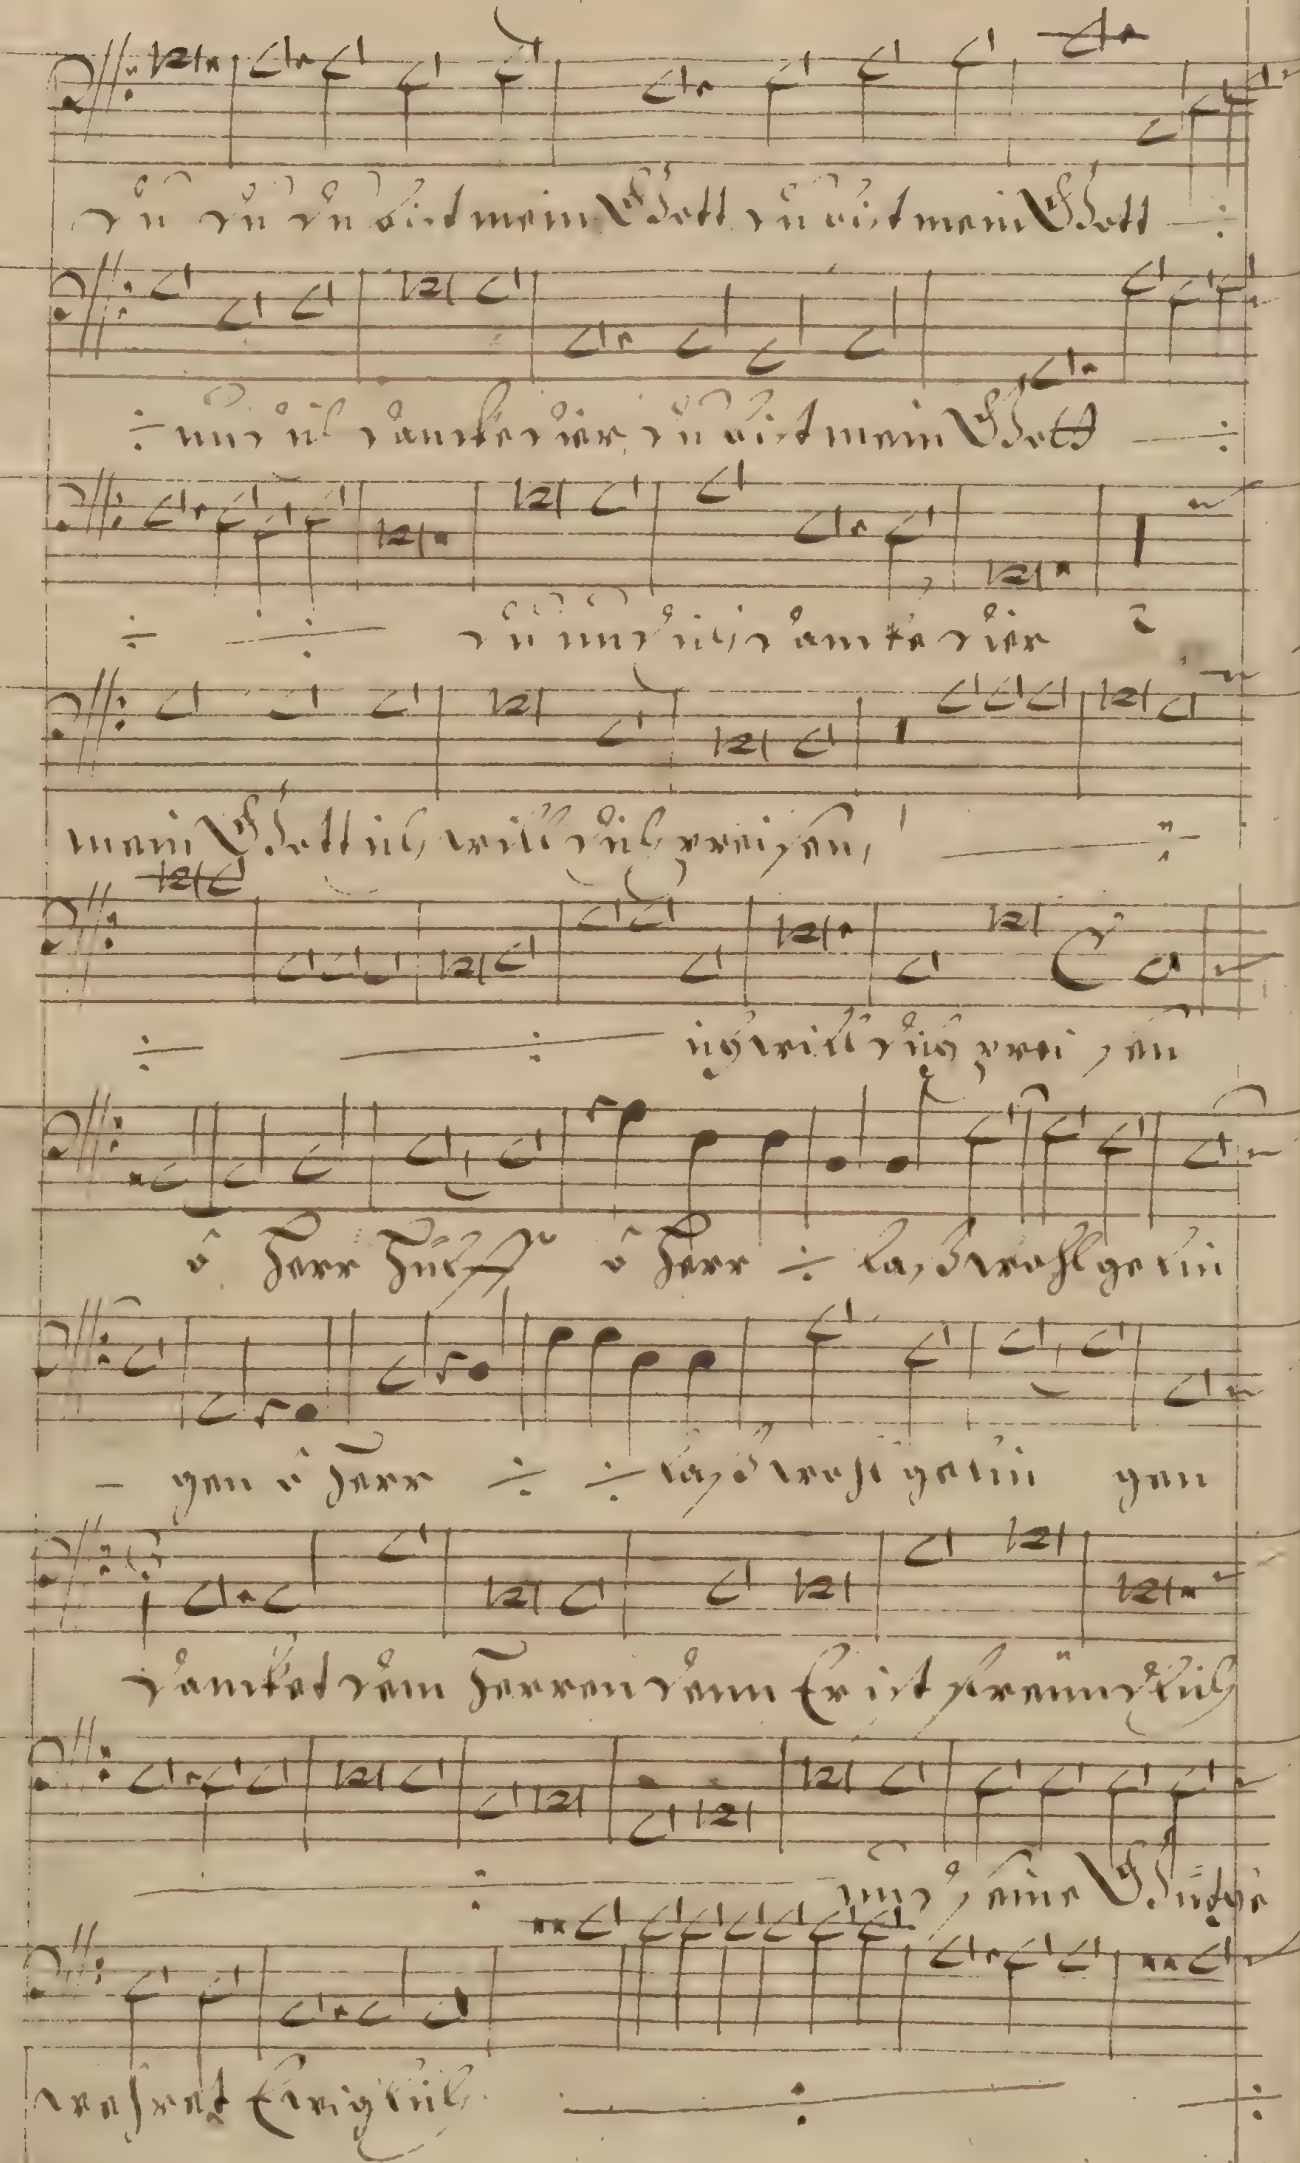 du du du bist mein Gott du bist mein Gott ÷
÷ und ich dancke dier, du bist mein Gott ÷
÷ ÷ du und ich dancke dier
mein Gott ich will dich preisen, ÷
÷ ÷ ich will dich preisen
ô Herr Hülff ô Herr ÷ laß wohl gelin
gen ô Herr ÷ ÷ laß wohl gelin gen
dancket dem Herren denn Er ist freündtlich
÷ und seine Güthe
wehret Ewiglich ÷ ÷